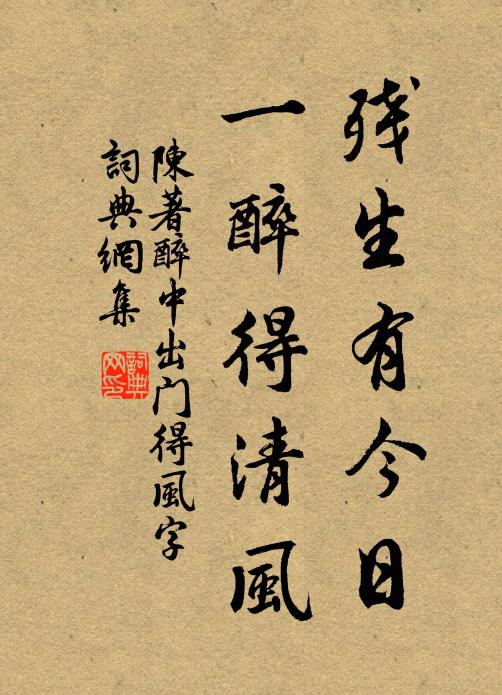 残生有今日
一醉得清風
陳著醉中出门得風字
詞典網集
詞典网印